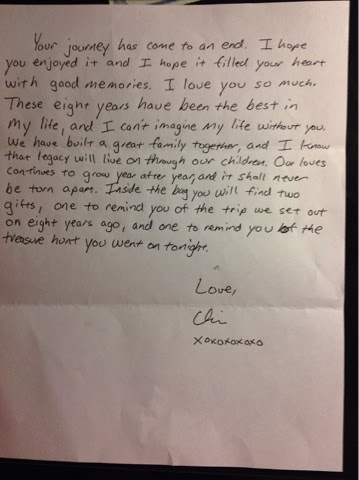 Your journey has come to an end. I hope
you enjoyed it and I hope it filled your heart
with good memories. I love you so much.
These eight years have been the best in
my life, and I can't imagine my life without you.
We have built a great family together, and I know
that legacy will live on through our children. Our loves
continues to grow year after year, and it shall never
be torn apart. Inside the bag you will find two
gifts, one to remind you of the trip we set out
on eight years ago, and one to remind you of the
treasure hunt you went on tonight.
Love,
xoxoxoxoxo